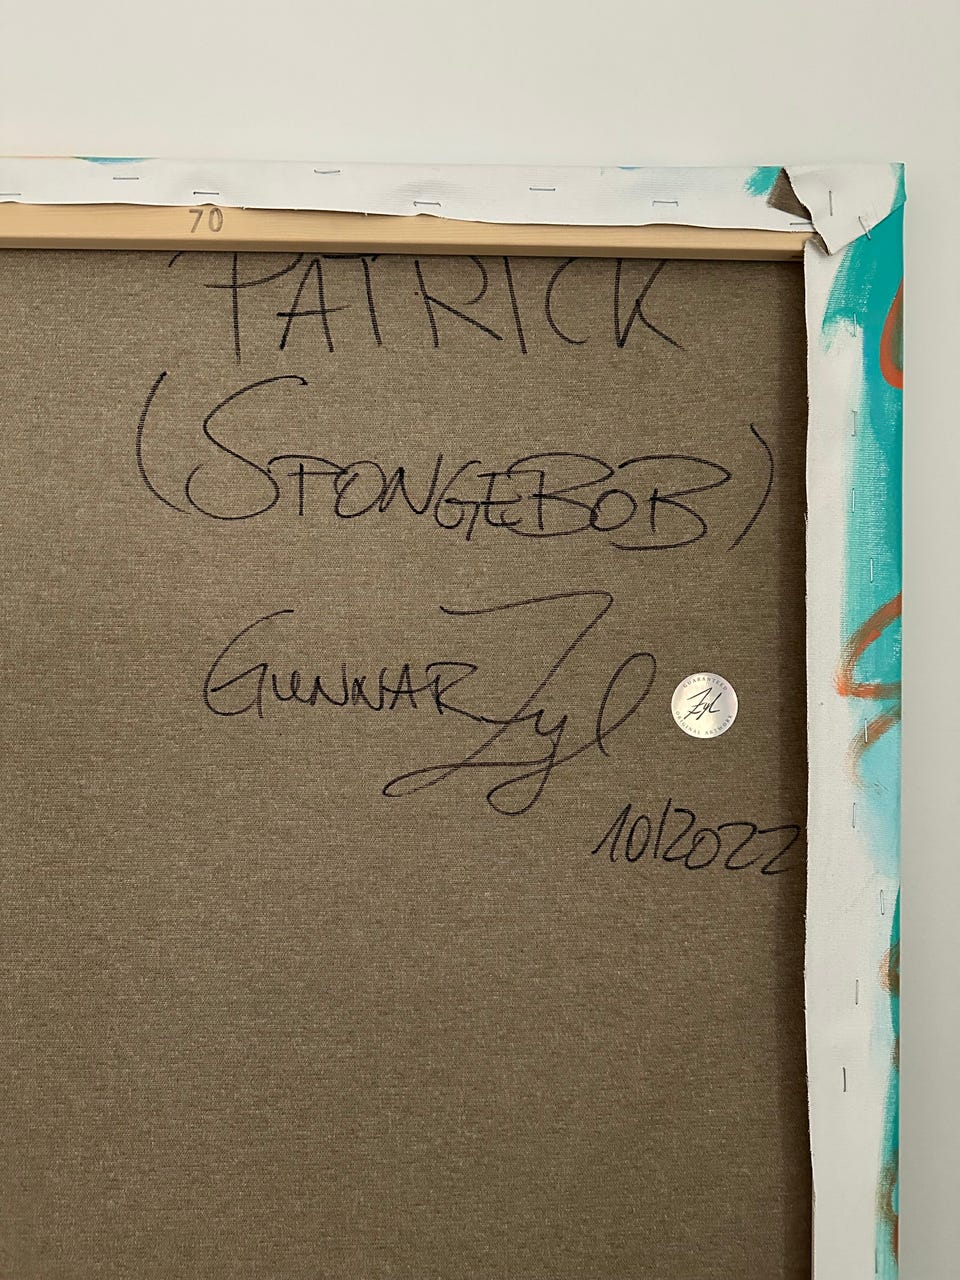 70
PATRICK
(SPONGEBOB)
GUNNAR Zyl
GUARANTEED
Zyl
ORIGINAL ARTWORK
10/2022